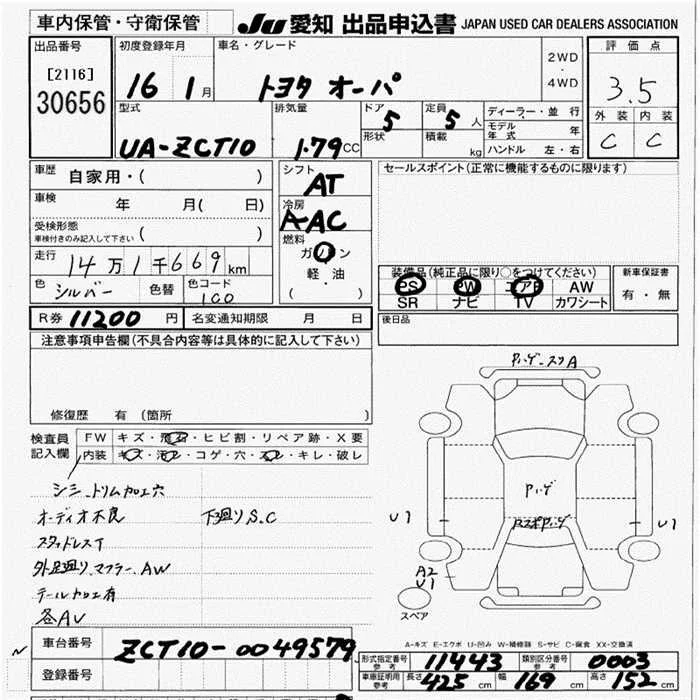 車内保管・守衛保管 JU 愛知 出品申込書 JAPAN USED CAR DEALERS ASSOCIATION
出品番号 初度登録年月 車名・グレード 評価点
[2116] 30656 16 1月 トヨタ オーパ 2WD・4WD 3.5
型式 排気量 ドア 5 定員 5人 ディーラー・並行 外装 内装
UA-ZCT10 1.79CC 形状 積載 kg モデル年式 年 C C
ハンドル 左・右
車歴 自家用・( ) シフト AT セールスポイント(正常に機能するものに限ります)
車検 年 月( 日) 冷房 AAC
受検形態 車検付きのみ記入して下さい ( ) 燃料 ガソリン
走行 14万1千669km 軽・油
色 シルバー 色替 色コード 1C0 ( )
装備品(純品に限り○をつけてください) 新車保証書
PS PW エアB AW 有・無
SR ナビ TV カワシート
R券 11200 円 名変通知期限 月 日 後日品
注意事項申告欄(不具合内容等は具体的に記入して下さい)
修復歴 有(箇所 )
検査員記入欄 FW キズ・飛石・ヒビ割・リペア跡・X要
内装 キズ・汚レ・コゲ・穴・スレ・キレ・破レ
シミ トリム加工穴
オーディオ不良 下廻りS.C
スタッドレスT
外足廻り、マフラー、AW
テールカエ有
各AU
Pハゲ-スリA
Pハゲ
U1 U1
A2
U1
スペア
A-キズ E-エクボ U-凹み W-補修跡 S-サビ C-腐食 XX-交換済
車台番号 ZCT10-0049579
登録番号
形式指定番号 参考 11443 類別区分番号 参考 0003
車庫証明用 参考 長さ 425cm 幅 169cm 高さ 152cm